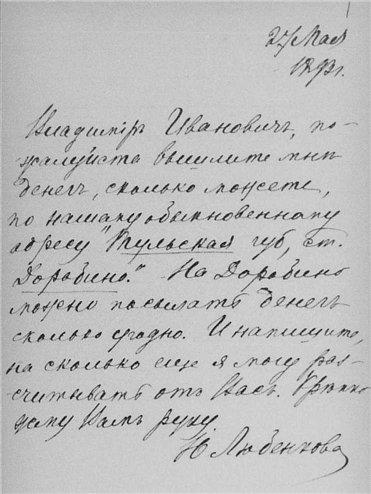 27 Мая
1893 г.
Владимiръ Ивановичъ, по-
жалуйста вышлите мнѣ
денегъ, сколько можете,
по нашему обыкновенному
адресу "Тульская губ, ст.
Доробино." На Доробино
можно посылать денегъ
сколько угодно. И напишите,
на сколько еще я могу раз-
считывать отъ Васъ. Крѣпко
жму Вамъ руку.
Н Любенкова